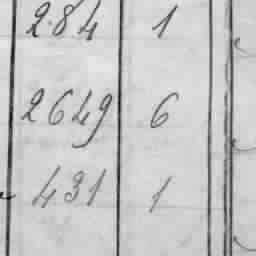 2.84 1
2649 6
431 1